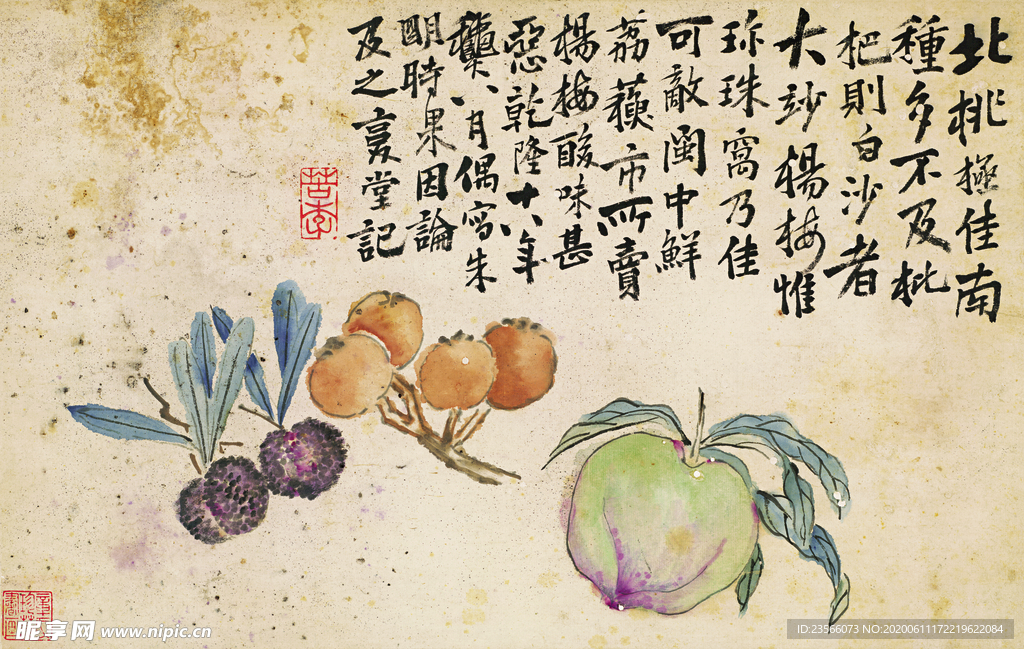 北桃極佳南
種多不及枇
杷則白沙者
大玅楊梅惟
珎珠窩乃佳
可敵閩中鮮
荔蘋市所賣
楊梅酸味甚
惡乾隆十八年
八月偶寫朱
明時果因論
及之夏堂記
昵享网 www.nipic.cn
ID:23566073 NO:20200611172219622084